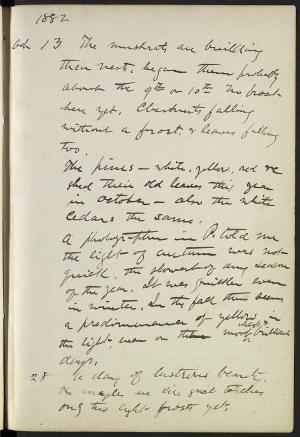 1882
Oct 13 The muskrats are building
their nests, began them probably
about the 9th or 10th. No frost
here yet. Chestnuts falling
without a frost & leaves falling
too.
The pines – white, yellow, red &c
shed their old leaves this year
in October – also the white
Cedars the same.
A photographer in P. told me
the light of autumn was not
quick, the slowest of any season
of the year. It was quicker even
in winter. In the fall there seems
a predominance of yellow in
the light even on the most brilliant
days.
28 A day of lustrous beauty.
only two light frosts yet.